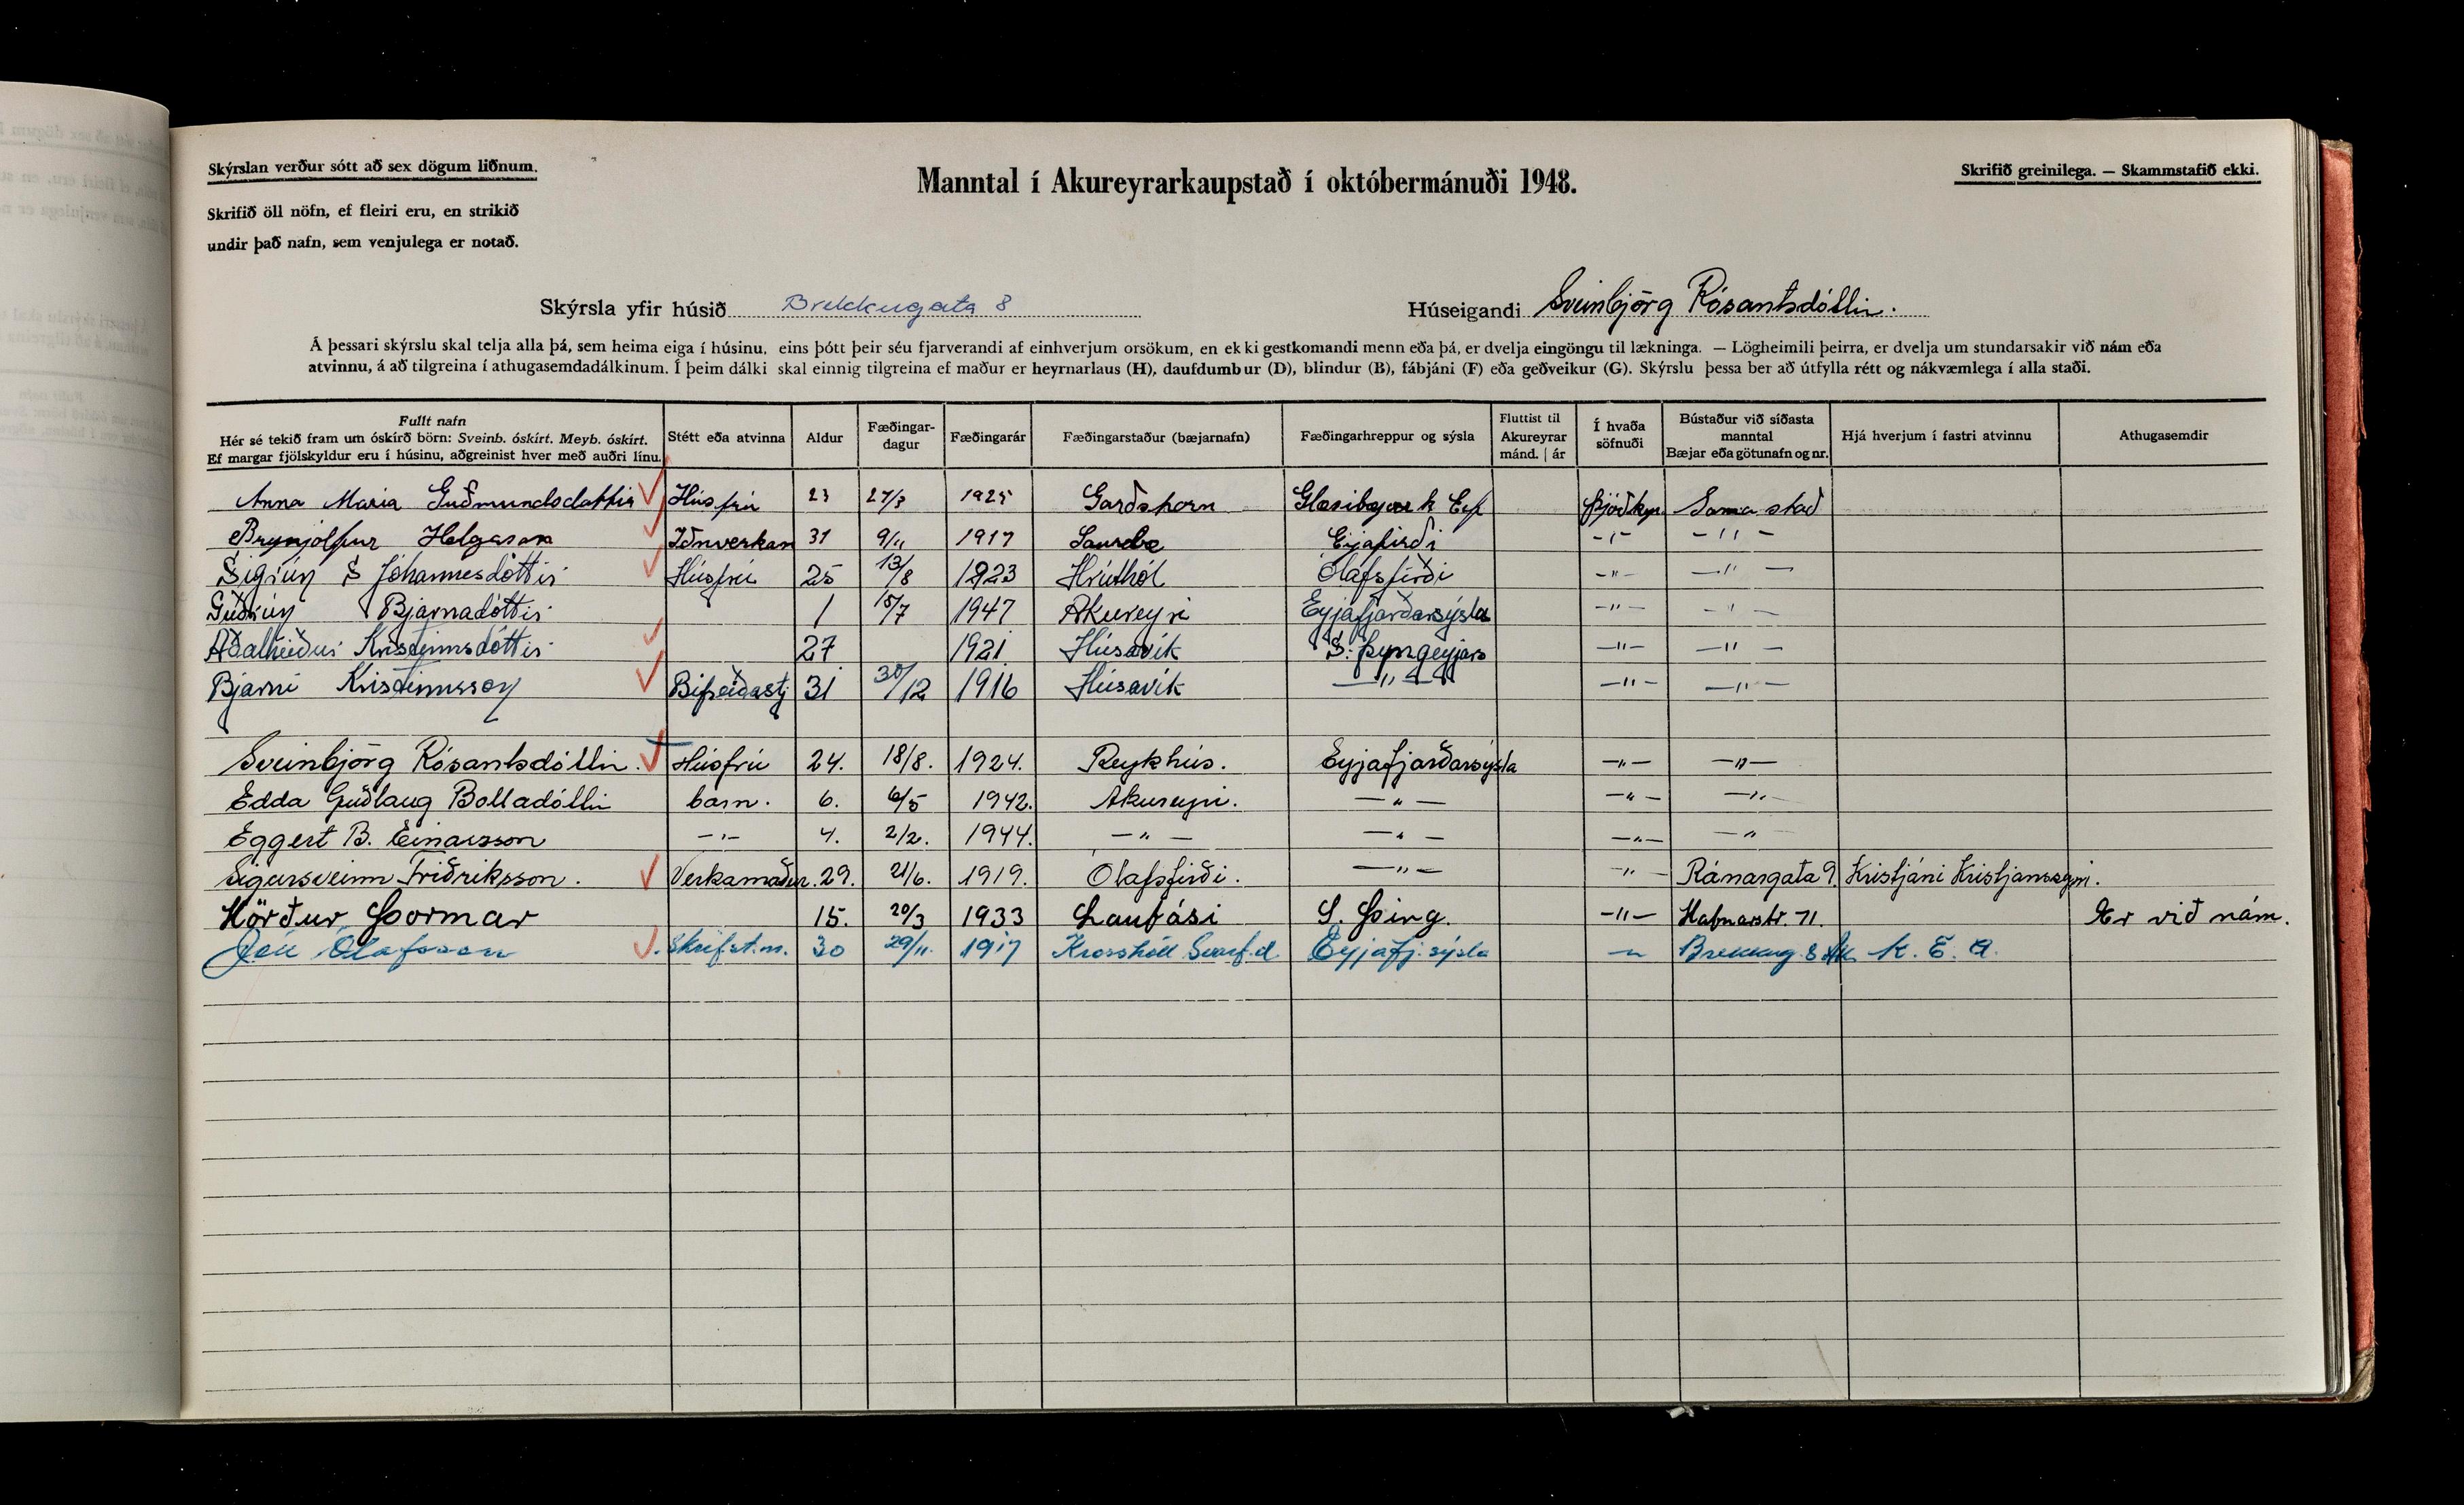 Skýrslan verður sótt að sex dögum liðnum.
Manntal í Akureyrarkaupstað í októbermánuði 1948.
Skrifið greinilega. — Skammstafið ekki.
Skrifið öll nöfn, ef fleiri eru, en strikið
undir það nafn, sem venjulega er notað.
Skýrsla yfir húsið Brekkugata 8 Húseigandi Sveinbjörg Rósantsdóttir.
Á þessari skýrslu skal telja alla þá, sem heima eiga í húsinu, eins þótt þeir séu fjarverandi af einhverjum orsökum, en ekki gestkomandi menn eða þá, er dvelja eingöngu til lækninga. — Lögheimili þeirra, er dvelja um stundarsakir við nám eða
atvinnu, á að tilgreina í athugasemdadálkinum. Í þeim dálki skal einnig tilgreina ef maður er heyrnarlaus (H), daufdumbur (D), blindur (B), fábjáni (F) eða geðveikur (G). Skýrslu þessa ber að útfylla rétt og nákvæmlega í alla staði.
Fullt nafn
Hér sé tekið fram um óskírð börn: Sveinb. óskírt. Meyb. óskírt.
Ef margar fjölskyldur eru í húsinu, aðgreinist hver með auðri línu.
Stétt eða atvinna
Aldur
Fæðingar-
dagur
Fæðingarár
Fæðingarstaður (bæjarnafn)
Fæðingarhreppur og sýsla
Fluttist til
Akureyrar
mánd. | ár
Í hvaða
söfnuði
Bústaður við síðasta
manntal
Bæjar eða götunafn og nr.
Hjá hverjum í fastri atvinnu
Athugasemdir
Anna Maria Guðmundsdottir Húsfrú 23 27/3 1925 Garðshorn Glæsibæjar h Eyf Þjóðkyr. Sama stað
Brynjólfur Helgason Iðnverkam 31 9/11 1917 Saurbæ Eyjafirði -"- -"-
Sigrún S Jóhannesdóttir Húsfrú 25 13/8 1923 Hrúthól Ólafsfirði -"- -"-
Guðrún Bjarnadóttir 1 15/7 1947 Akureyri Eyjafjarðarsýsla -"- -"-
Aðalheiður Kristinnsdóttir 27 1921 Húsavík S. Þyngeyjars -"- -"-
Bjarni Kristinnsson Bifreiðastj 31 30/12 1916 Húsavík -"- -"- -"-
Sveinbjörg Rósantsdóttir. Húsfrú 24. 18/8. 1924. Reykhús. Eyjafjarðarsýsla -"- -"-
Edda Guðlaug Bolladóttir barn. 6. 6/5 1942. Akureyri. -"- -"- -"-
Eggert B. Einarsson -"- 4. 2/2. 1944. -"- -"- -"- -"-
Sigursveinn Friðriksson. Verkamaður. 29. 21/6. 1919. Ólafsfirði. -"- -"- Ránargata 9. Kristjáni Kristjanssyni.
Hörður Þormar 15. 20/3 1933 Laufási S. Þing. -"- Hafnarstr. 71. Er við nám.
Jón Ólafsson Skrifst.m. 30 29/11. 1917 Krosshóll Svarf.d. Eyjafj.sýsla -"- Brekkug. 8 Ak. K. E. A.